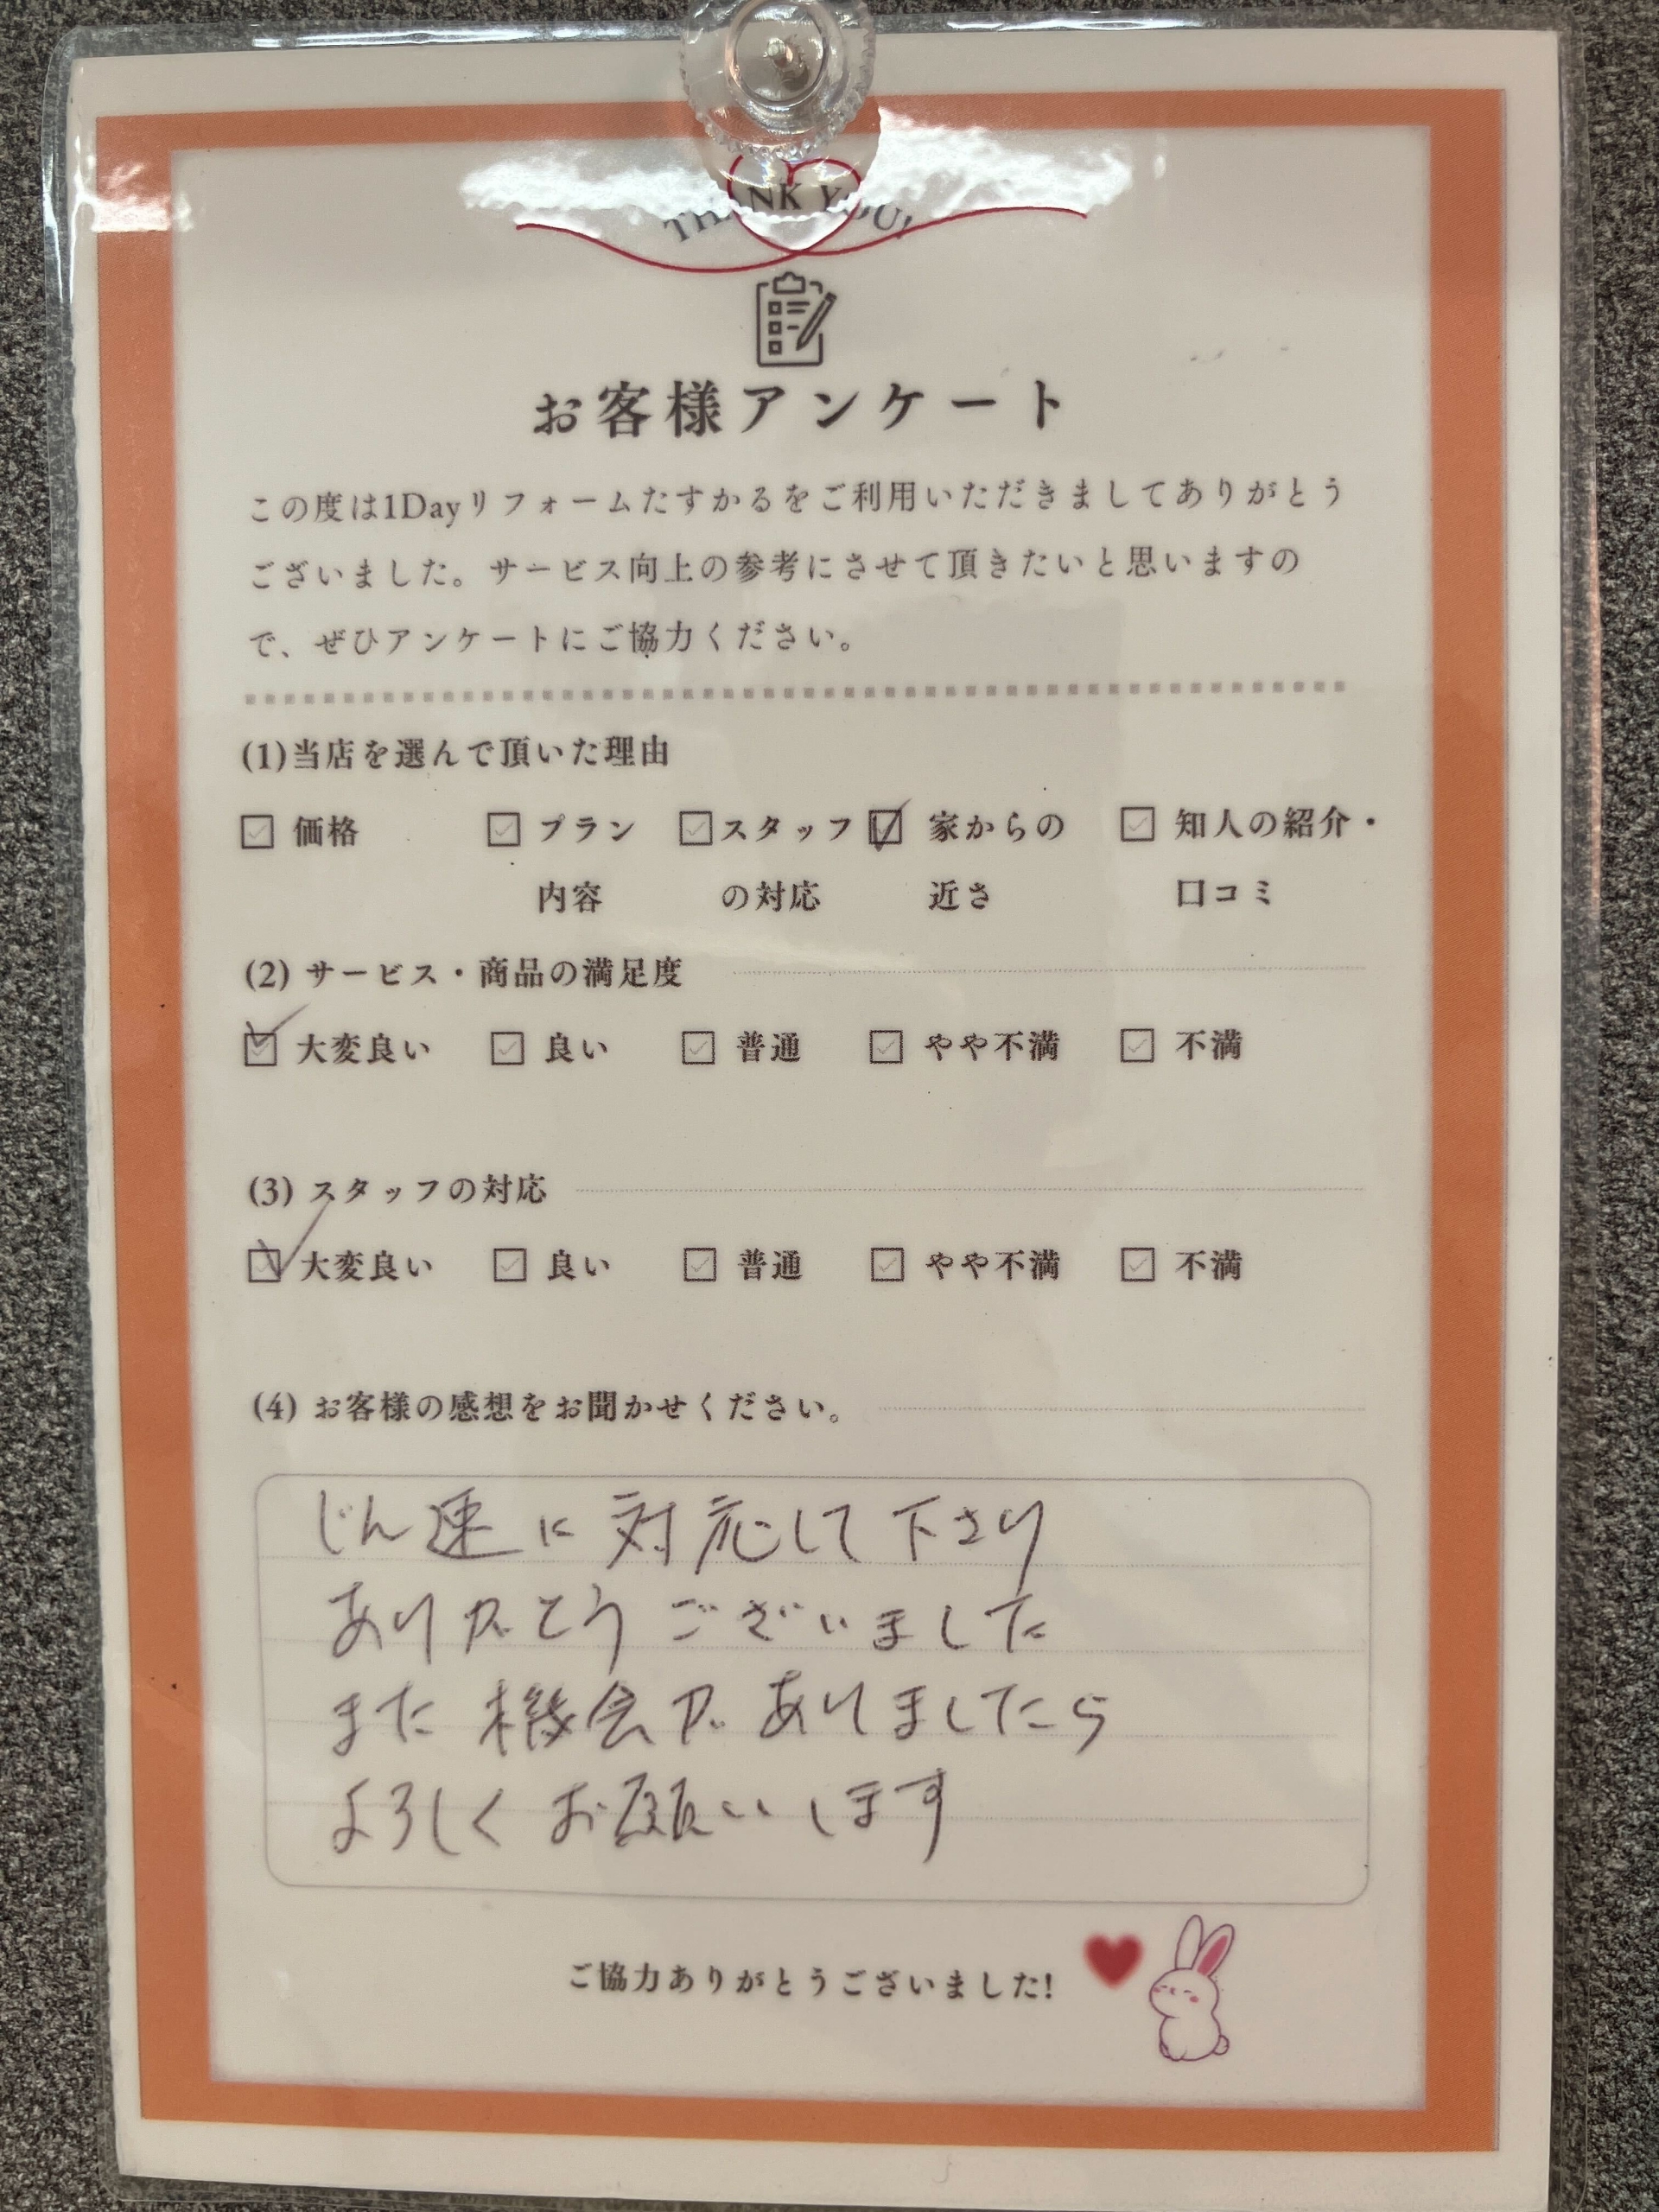 THANK YOU!
お客様アンケート
この度は1Dayリフォームたすかるをご利用いただきましてありがとう
ございました。サービス向上の参考にさせて頂きたいと思いますの
で、ぜひアンケートにご協力ください。
(1)当店を選んで頂いた理由
価格 プラン スタッフ 家からの 知人の紹介・
内容 の対応 近さ 口コミ
(2) サービス・商品の満足度
大変良い 良い 普通 やや不満 不満
(3) スタッフの対応
大変良い 良い 普通 やや不満 不満
(4) お客様の感想をお聞かせください。
じん速に対応して下さり
ありがとうございました
また機会がありましたら
よろしくお願いします
ご協力ありがとうございました!